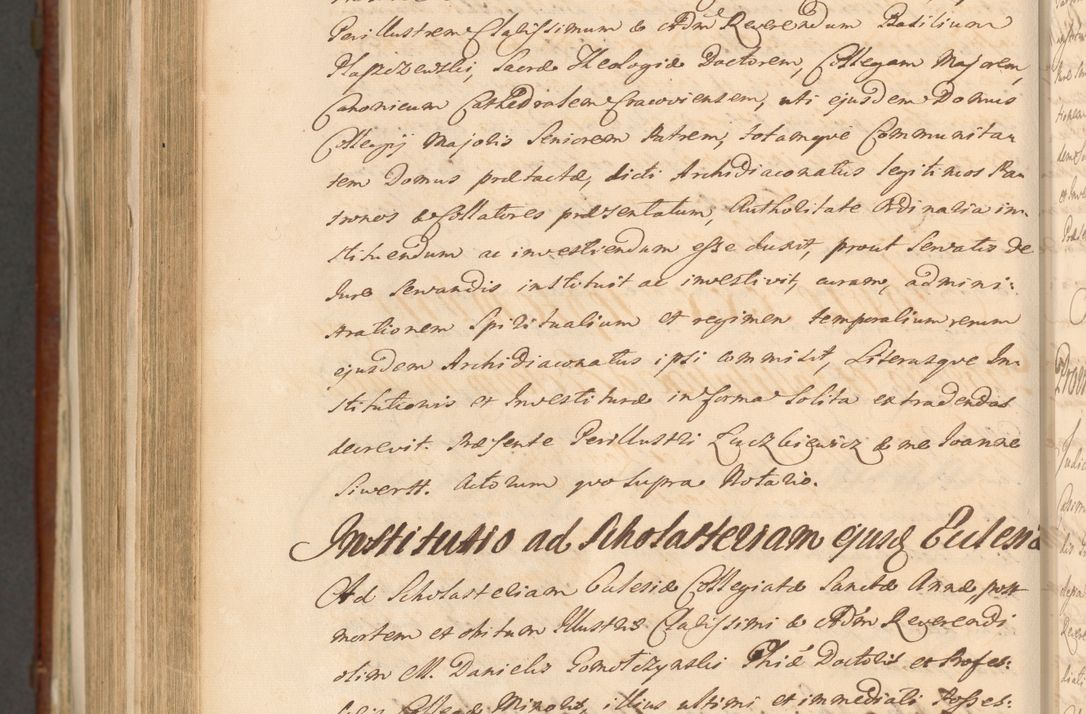 Perillustrem Clarissimum & Adm. Reverendum Basilium
Płaszczewski, Sacræ Theologiæ Doctorem, Collegam Majorem,
Canonicum Cathedralem Cracoviensem, uti ejusdem Domus
Collegij Majoris Seniorem Patrem, totamque Communita-
tem Domus prætactæ, dicti Archidiaconatus legitimos Pa-
tronos & Collatores præsentatum, Authoritate Ordinaria in-
stituendum ac investiendum esse duxit, prout Servatis de
Jure Servandis instituit ac investivit, curam, admini-
strationem Spiritualium et regimen temporalium rerum
ejusdem Archidiaconatus ipsi commisit, Literasque In-
stitutionis et Investituræ in forma Solita extradendas
decrevit. Præsente Perillustri Łuczkiewicz & me Joanne
Siwertt. Actorum quo supra Notario.
Institutio ad Scholasteriam ejusq Ecclesiæ
Ad Scholasteriam Ecclesiæ Collegiatæ Sanctæ Annæ, post
mortem et obitum Illustris Clarissimi & Adm Reverendi
olim M. Danielis Gomolczynski Phiæ Doctoris et Profes-
Collegæ Minoris, illius ultimi et immediati Posses-